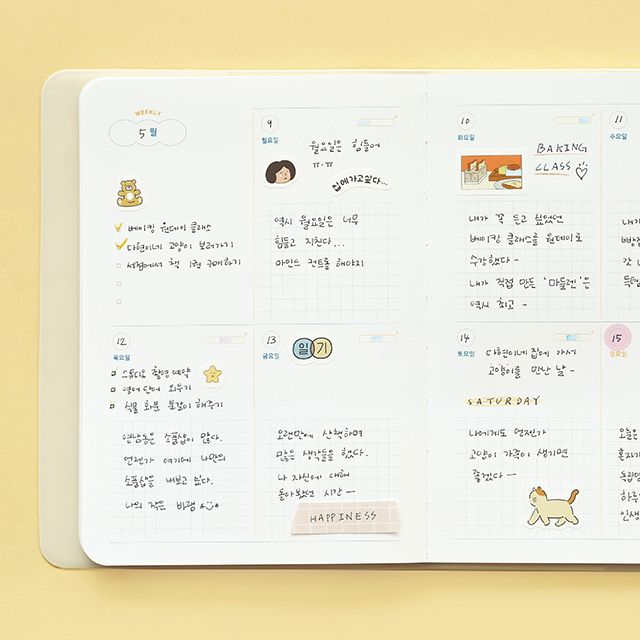 WEEKLY
5월
베이킹 원데이 클래스
다현이네 고양이 보러가기
서점에서 책 1권 구매하기
9
월요일
월요일은 힘들어
ㅠ.ㅠ
집에가고싶다...
역시 월요일은 너무
힘들고 지친다...
마인드 컨트롤 해야지
10
화요일
BAKING
CLASS
내가 꼭 듣고 싶었던
베이킹 클래스를 원데이로
수강했다-
내가 직접 만든 '마들렌'은
역시 최고-
11
수요일
내가
갓
12
목요일
스튜디오 촬영 예약
영어 단어 외우기
식물 화분 분갈이 해주기
연남동은 소품샵이 많다.
언젠가 여기에 나만의
소품샵을 내보고 싶다.
나의 작은 바램
13
금요일
일기
오랜만에 산책하며
많은 생각들을 했다.
나 자신에 대해
돌아봤던 시간-
HAPPINESS
14
토요일
다현이네 집에 가서
고양이를 만난 날-
SATURDAY
나에게도 언젠가
고양이 가족이 생기면
좋겠다-
15
일요일
오늘은
혼자
독립
하루
인생